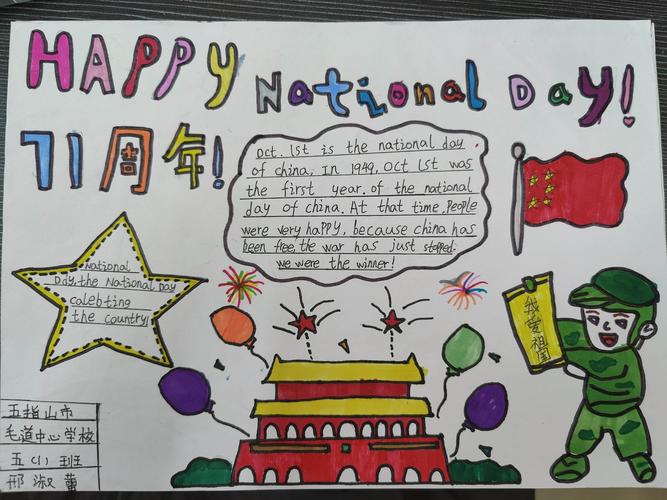 HAPPY National Day!
71周年!
Oct. 1st is the national day
of china. In 1949, Oct 1st was
the first year. of the national
day of China. At that time. People
were very happy, because china has
been free. the war has just stopped.
we were the winner!
National
Day, the National Day
calebting
the country!
我爱祖国
五指山市
毛道中心学校
五(1)班
邢淑蕾